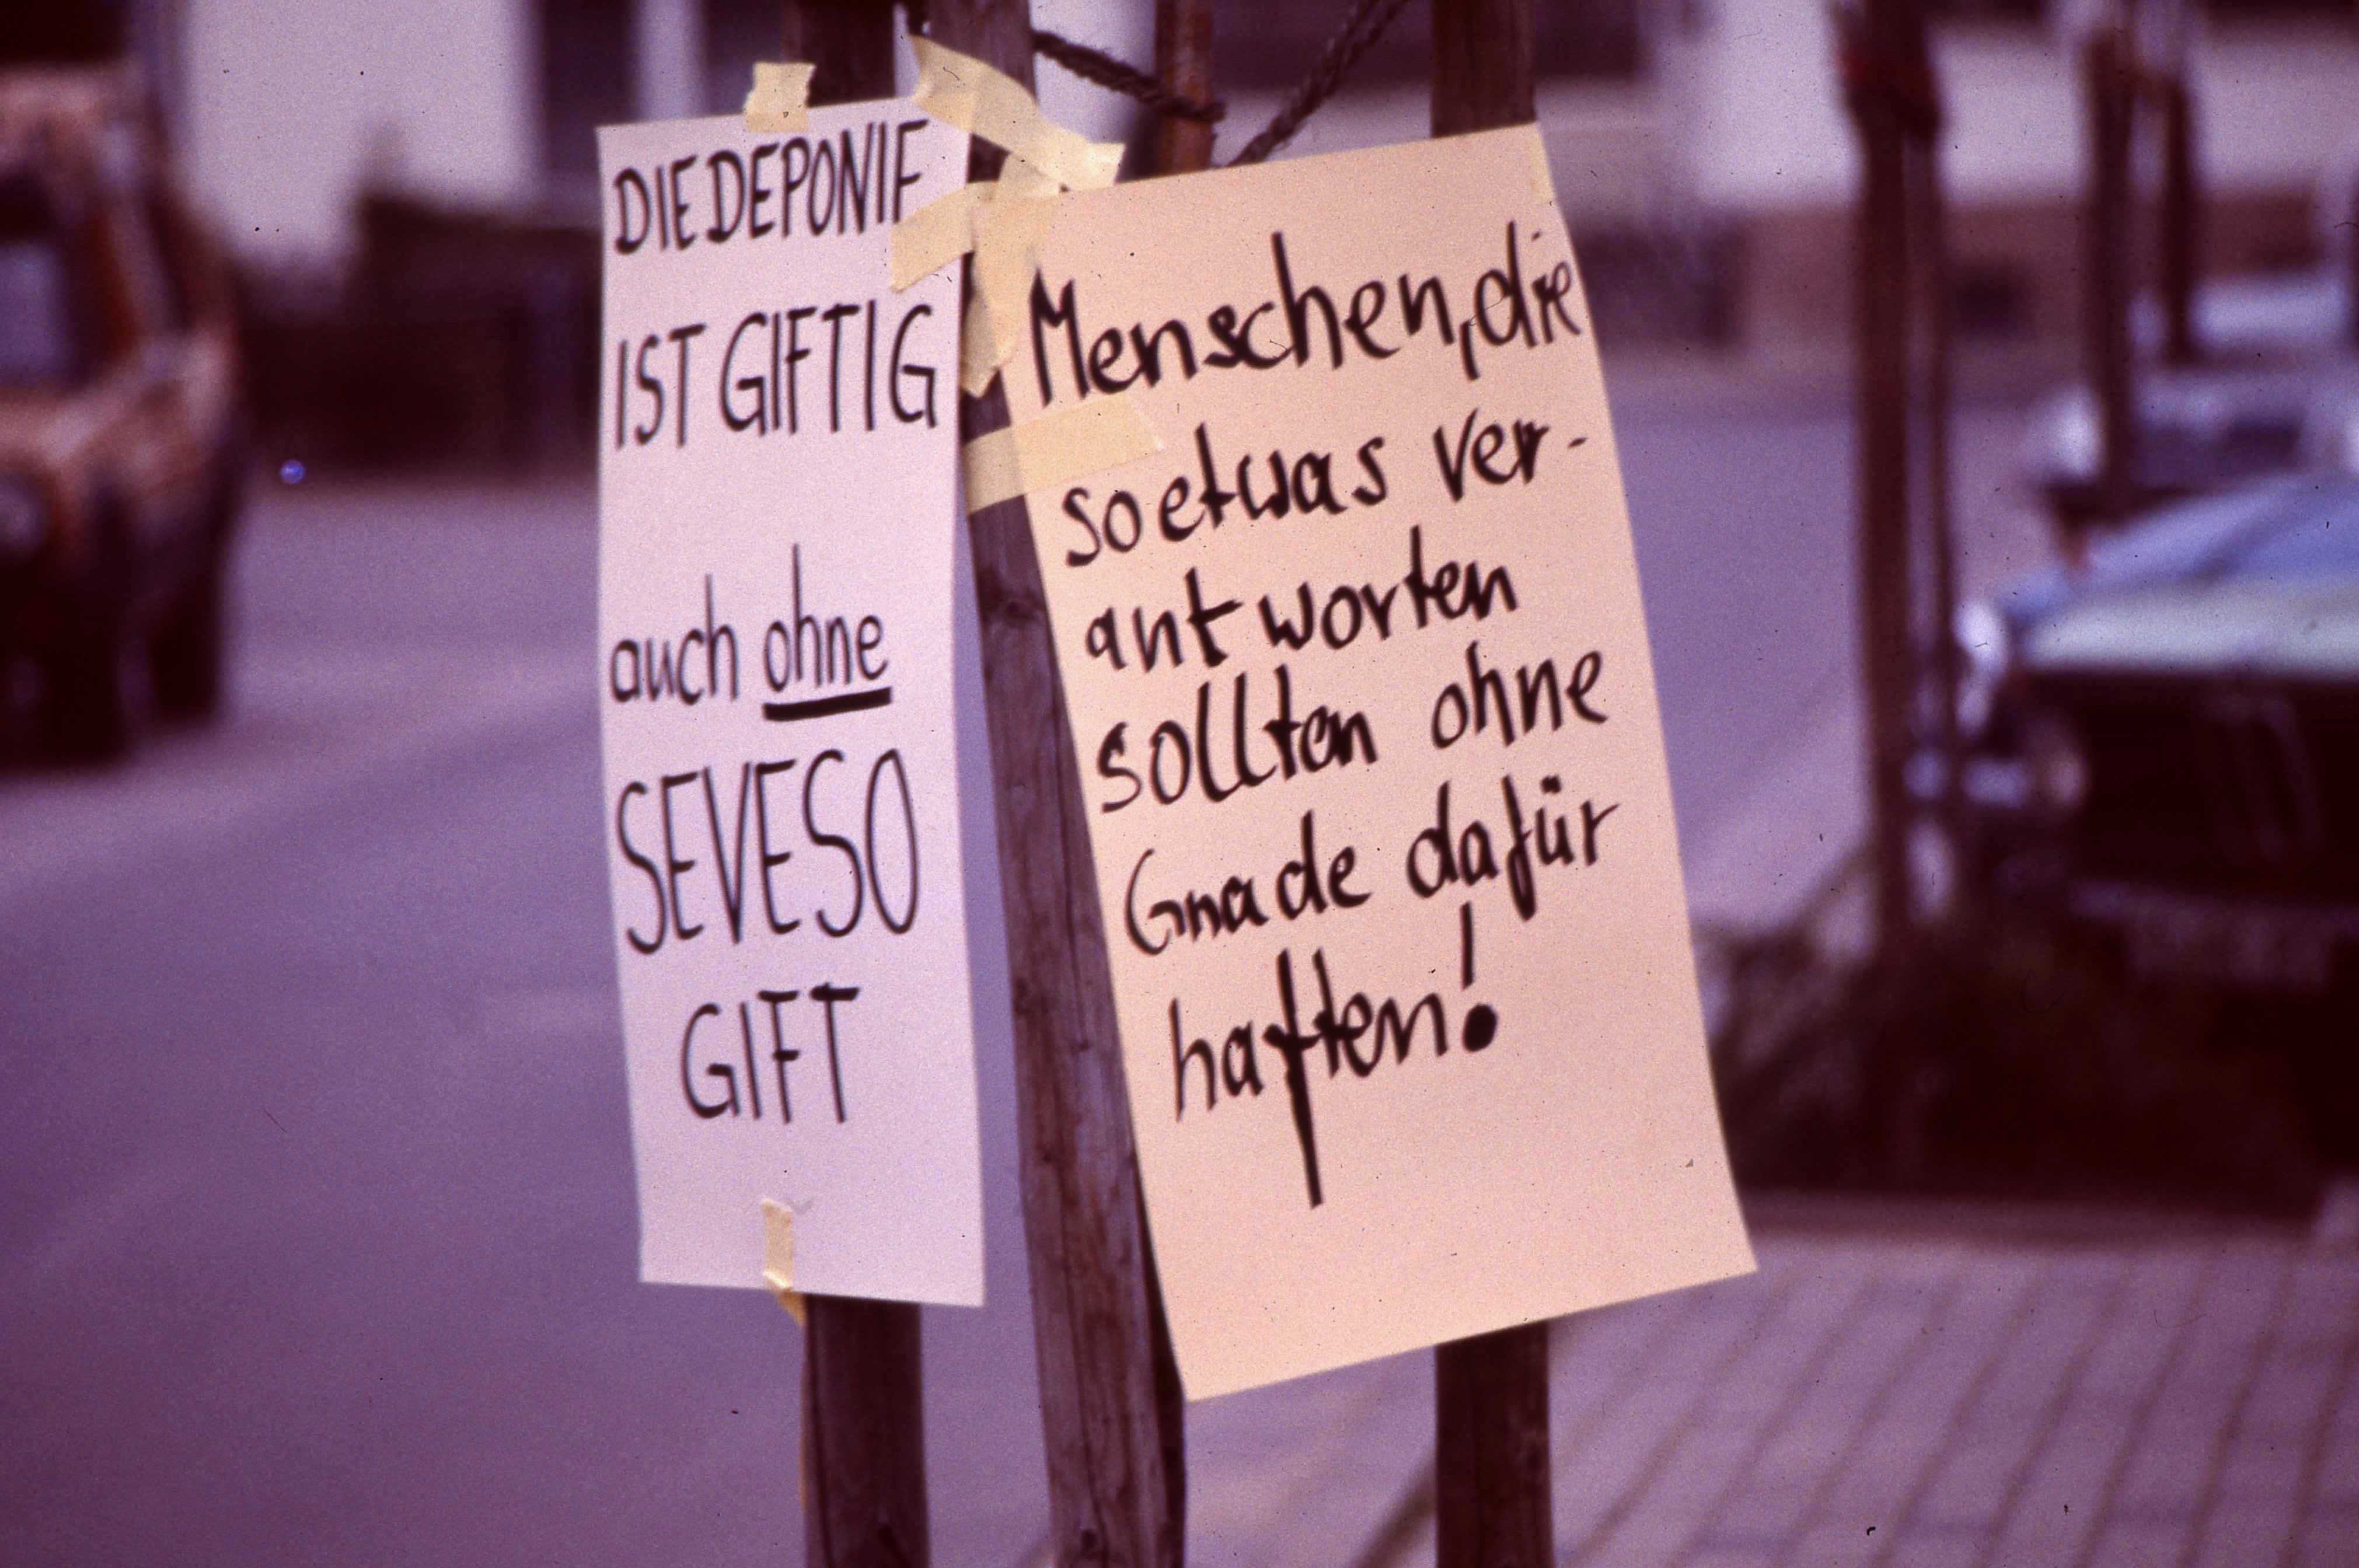 DIE DEPONIE
IST GIFTIG
auch ohne
SEVESO
GIFT
Menschen, die
so etwas ver-
antworten
sollten ohne
Gnade dafür
haften!